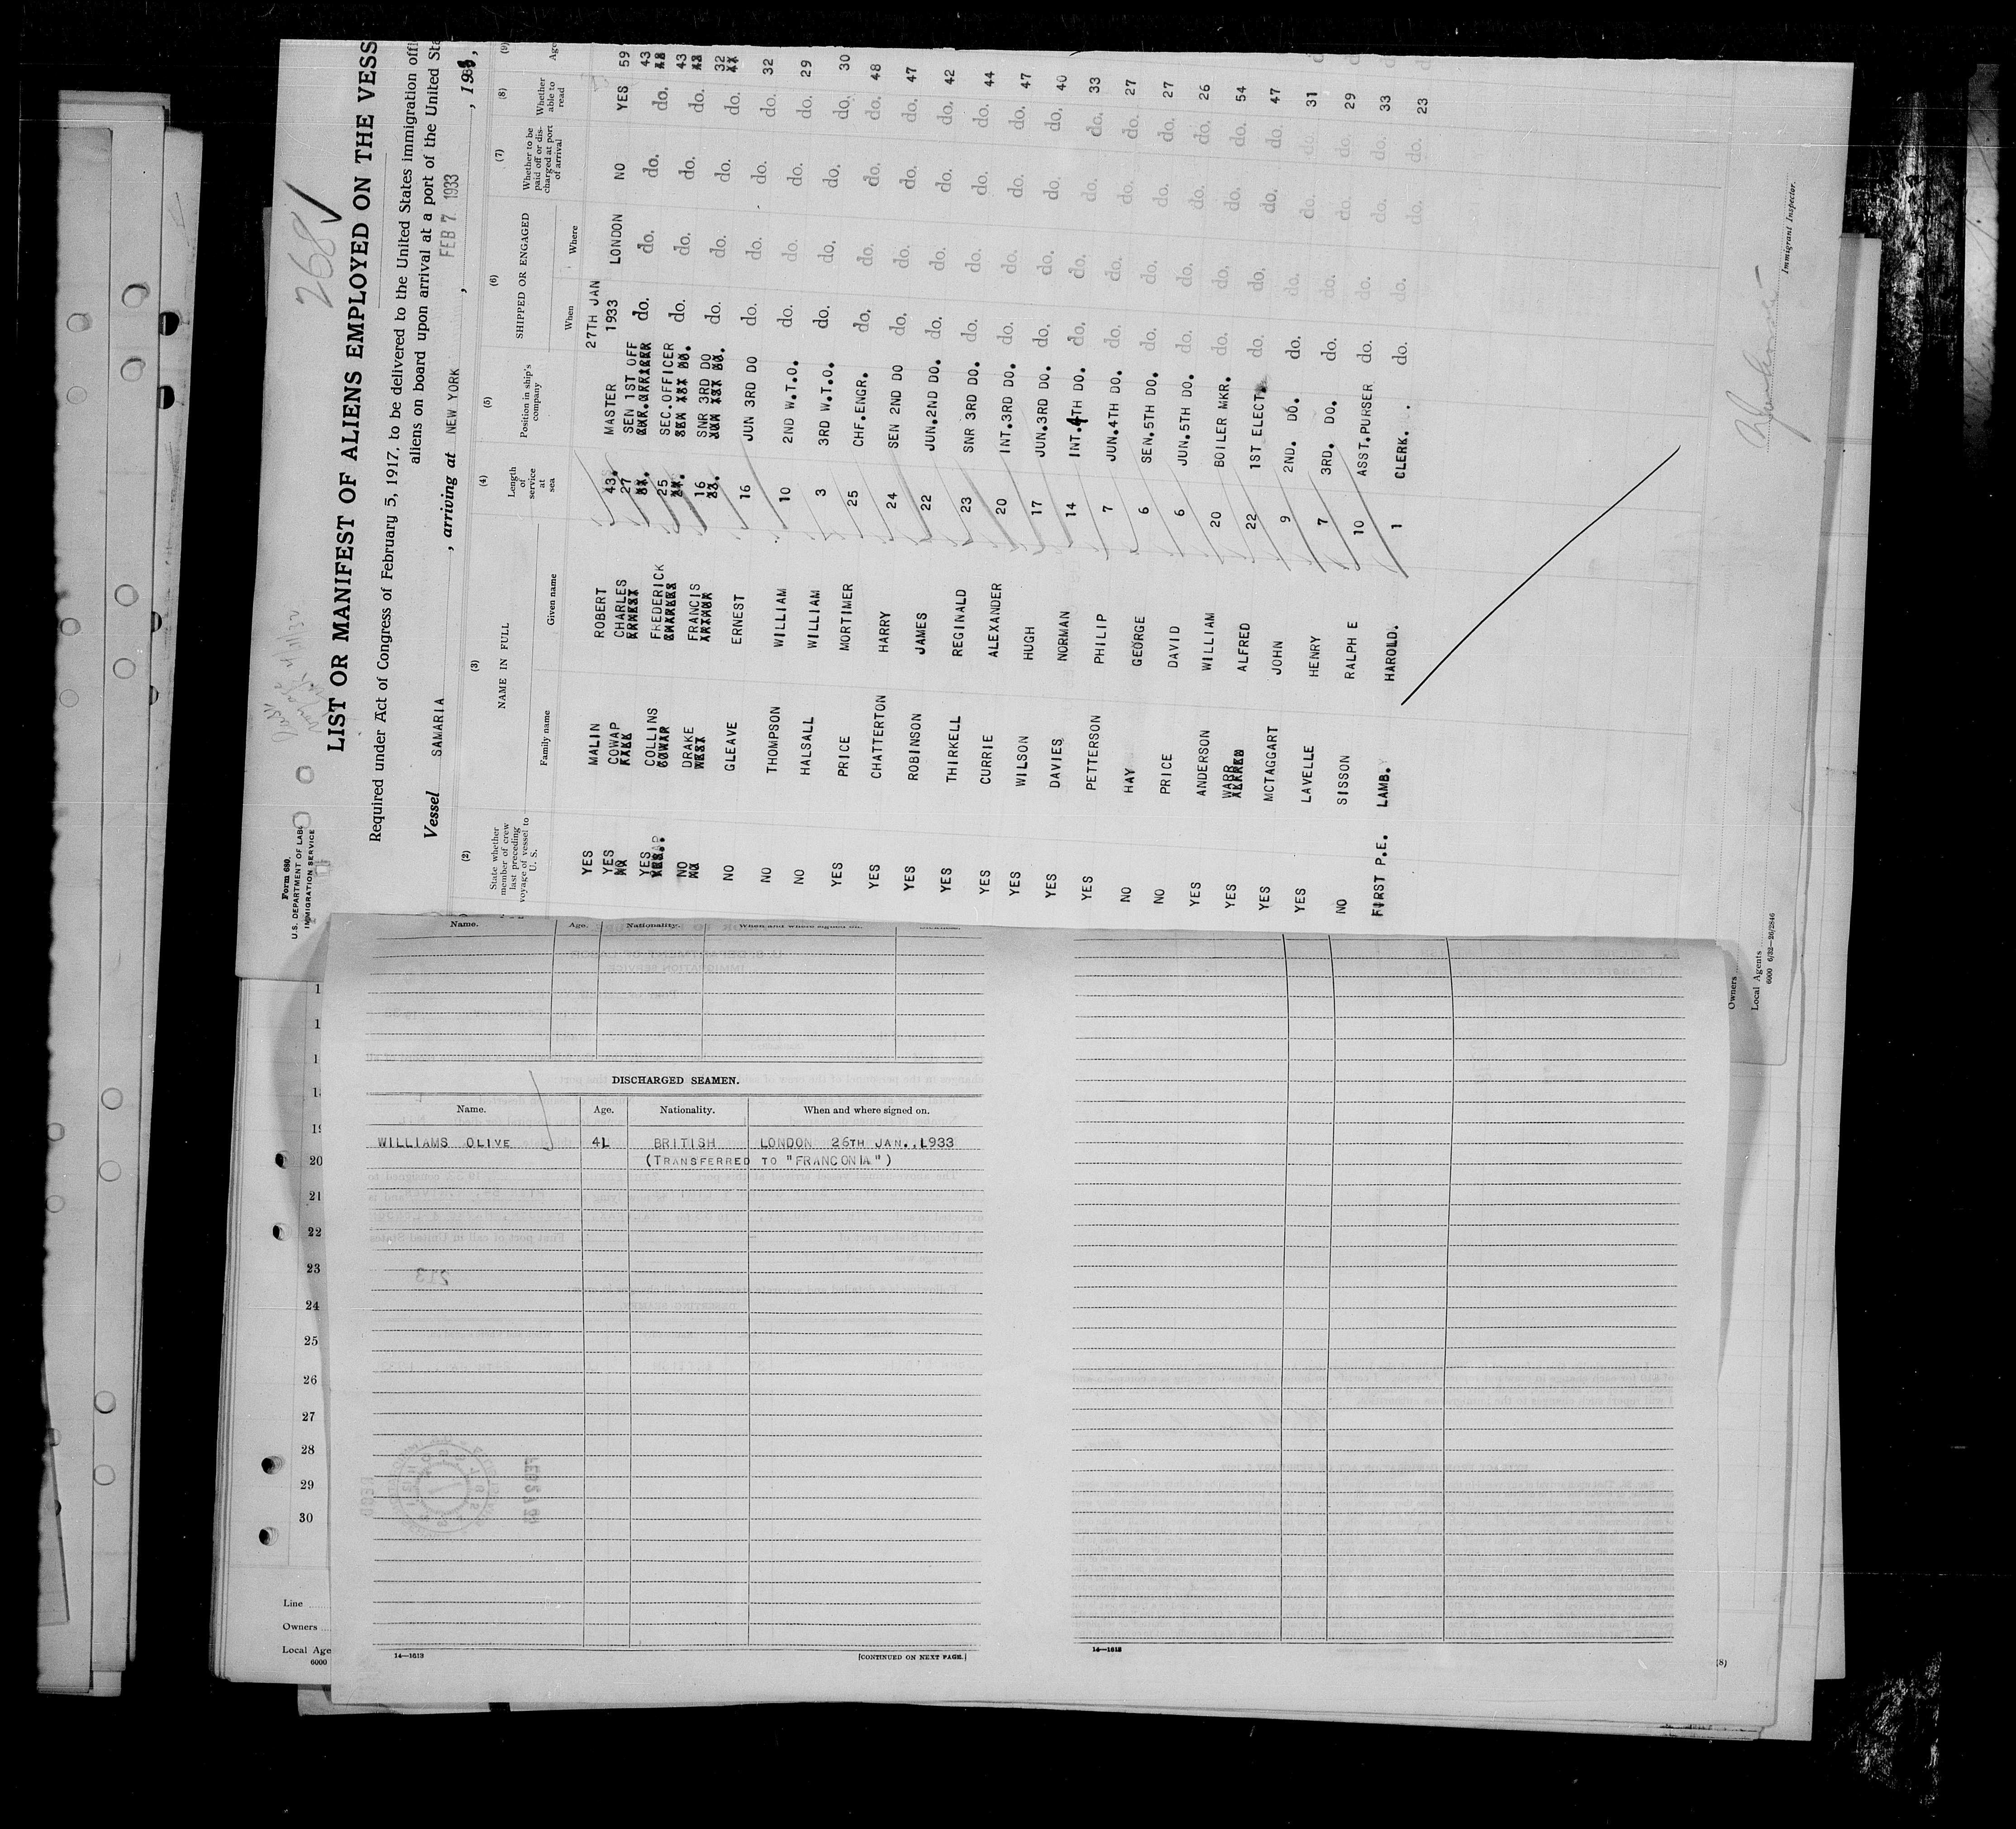 268
Form 680.
U.S. DEPARTMENT OF LAB
IMMIGRATION SERVICE
LIST OR MANIFEST OF ALIENS EMPLOYED ON THE VESS
Required under Act of Congress of February 5, 1917, to be delivered to the United States immigration offi
aliens on board upon arrival at a port of the United Sta
Vessel SAMARIA , arriving at NEW YORK , FEB 7 1933 , 193 ,
(2) (3) (4) (5) (6) (7) (8) (9)
State whether member of crew last preceding voyage of vessel to U. S. NAME IN FULL Length of service at sea Position in ship's company SHIPPED OR ENGAGED Whether to be paid off or discharged at port of arrival Whether able to read Age
Family name Given name When Where
YES MALIN ROBERT 43. MASTER 27TH JAN 1933 LONDON NO YES 59
YES COWAP CHARLES 27 SEN 1ST OFF do. do. do. do. 43
YES COLLINS FREDERICK 25 SEC.OFFICER do. do. do. do. 43
NO DRAKE FRANCIS 16 SNR 3RD DO do. do. do. do. 32
NO GLEAVE ERNEST 16 JUN 3RD DO do. do. do. do. 32
NO THOMPSON WILLIAM 10 2ND W.T.O. do. do. do. do. 29
NO HALSALL WILLIAM 3 3RD W.T.O. do. do. do. do. 30
YES PRICE MORTIMER 25 CHF.ENGR. do. do. do. do. 48
YES CHATTERTON HARRY 24 SEN 2ND DO do. do. do. do. 47
YES ROBINSON JAMES 22 JUN.2ND DO. do. do. do. do. 42
YES THIRKELL REGINALD 23 SNR 3RD DO. do. do. do. do. 44
YES CURRIE ALEXANDER 20 INT.3RD DO. do. do. do. do. 47
YES WILSON HUGH 17 JUN.3RD DO. do. do. do. do. 40
YES DAVIES NORMAN 14 INT.4TH DO. do. do. do. do. 33
YES PETTERSON PHILIP 7 JUN.4TH DO. do. do. do. do. 27
NO HAY GEORGE 6 SEN.5TH DO. do. do. do. do. 27
NO PRICE DAVID 6 JUN.5TH DO. do. do. do. do. 26
YES ANDERSON WILLIAM 20 BOILER MKR. do. do. do. do. 54
YES WARR ALFRED 22 1ST ELECT. do. do. do. do. 47
YES MCTAGGART JOHN 9 2ND. DO. do. do. do. do. 31
YES LAVELLE HENRY 7 3RD. DO. do. do. do. do. 29
NO SISSON RALPH E 10 ASST.PURSER do. do. do. do. 33
FIRST P.E. LAMB. HAROLD. 1 CLERK. do. do. do. do. 23
Immigrant Inspector.
Owners
Local Agents
6000 6/32—26/2846
Name. Age. Nationality. When and where signed on.
DISCHARGED SEAMEN.
Name. Age. Nationality. When and where signed on.
WILLIAMS OLIVE 41 BRITISH LONDON 26TH JAN.,1933
(TRANSFERRED TO "FRANCONIA")
14—1613
[CONTINUED ON NEXT PAGE.]
14—1613
19
20
21
22
23
24
25
26
27
28
29
30
Line
Owners
Local Age
6000